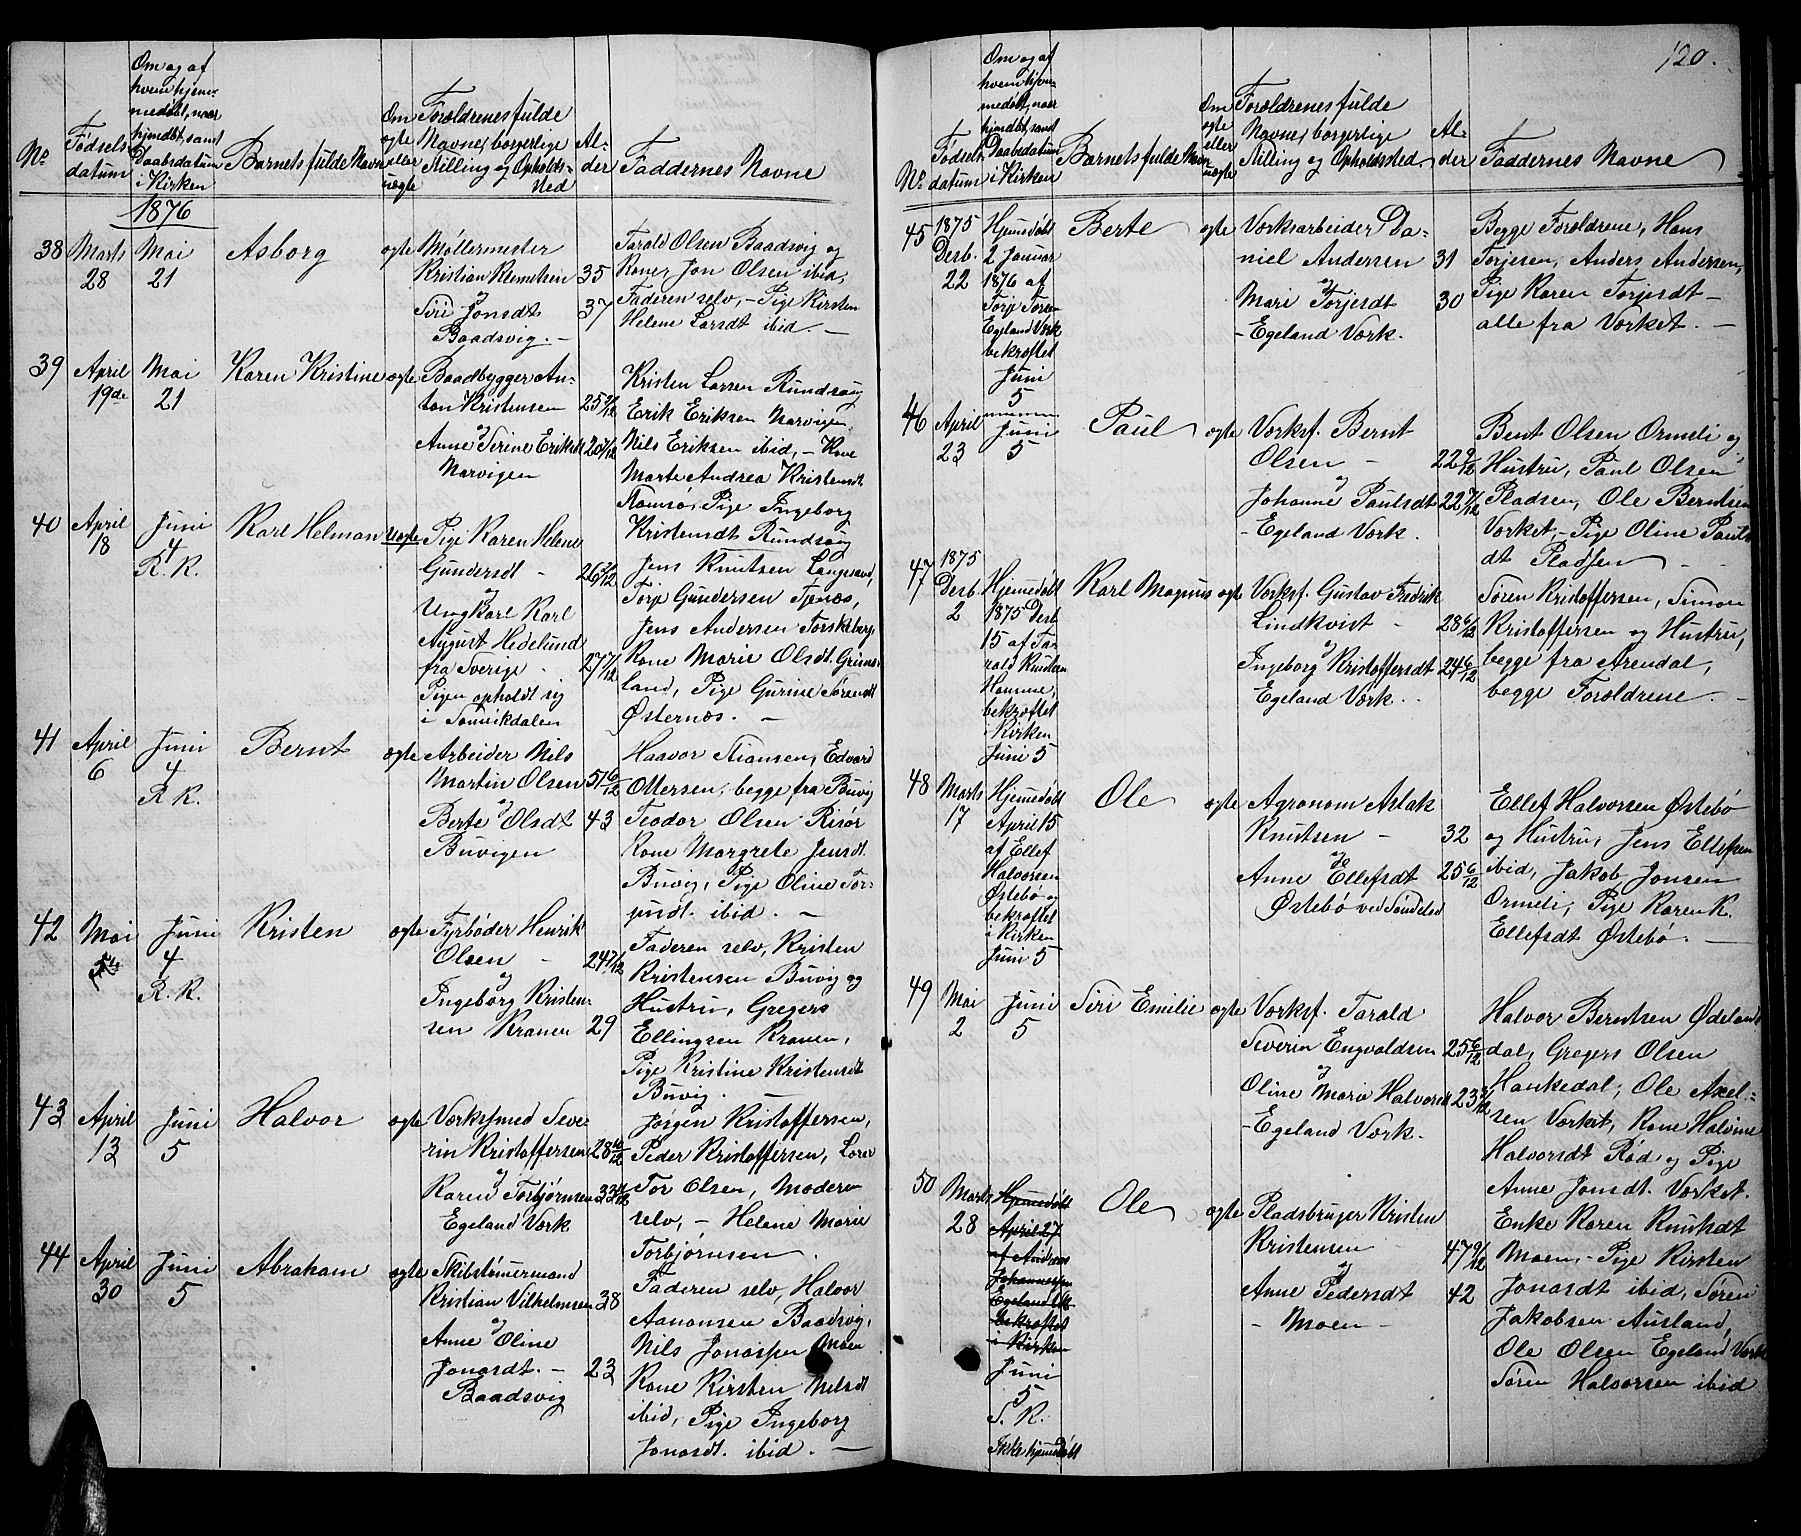 120.
No
Fødsels-
datum
Om og af
hvem hjem-
medøbt, naar
hjemdøbt, samt
Daabsdatum
i Kirken
Barnets fulde Navn
Om
ægte
eller
uægte
Forældrenes fulde
Navne, borgerlige
Stilling og Opholds-
sted
Al-
der
Faddernes Navne
1876
38 Marts
28
Mai
21
Asborg
ægte
Møllermester
Kristian Knudsen 35
og
Siri Jonsdt 37
Baadsvig. -
Tarald Olsen Baadsvig og
Kone, Jon Olsen ibid,
Faderen selv, - Pige Kirsten
Helene Larsdt ibid. -
39 April
19de
Mai
21
Karen Kristine
ægte
Baadbygger An-
ton Kristensen
og
Anne Serine Eriksdt
Narvigen
Kristen Larsen Rundsaug
Erik Eriksen Narvigen,
Nils Eriksen ibid, - Kone
Marte Andrea Kristensdt
Pige Ingeborg
Kristensdt Rundsaug
40 April
18
Juni
4
R. K.
Karl Helman
uægte
Pige Karen Helene
Gundersdt -
og
Ungkarl Karl
August Hedelund
fra Sverige -
Pigen opholdt sig
i Sannikdalen
Jens Knutsen Langsand,
Torje Gundersen Tjenæs,
Jens Andersen Torskeberg,
Kone Marie Olsdt. Grims-
land, Pige Gurine Sørensdt
Østernæs. -
41 April
6
Juni
4
R. K.
Bernt
ægte
Arbeider Nils
Martin Olsen 51 6/12
og
Berte Olsdt 43
Buvigen
Haavor Stiansen, Edvard
Ottersen, begge fra Buvig
Teodor Olsen Risør
Kone Margrete Jensdt.
Buvig, Pige Oline Tor-
jusdt. ibid. -
42 Mai
Juni
4
R. K.
Kristen
ægte
Fyrbøder Henrik
Olsen - 24 7/12
og
Ingeborg Kristen-
sen Kranen 29
Faderen selv, Kristen
Kristensen Buvig og
Hustru, Gregers
Ellingsen Kranen,
Pige Kristine Kristensdt
Buvig. -
43 April
13
Juni
5
Halvor
ægte
Værkssmed Seve-
rin Kristoffersen
og
Karen Torbjørnsen
Egeland Værk
Jørgen Kristoffersen,
Peder Kristoffersen, Lærer
Tor Olsen, Moderen
selv, - Helene Marie
Torbjørnsen.
44 April
30
Juni
5
Abraham
ægte
Skibstømermand
Kristian Vilhelmsen 38
og
Anne Oline
Jonasdt. - 23
Baadsvig
Faderen selv, Halvor
Aanonsen Baadsvig,
Nils Jonassen Moen
Kone Kirsten Nilsdt
ibid, Pige Ingeborg
Jonasdt. ibid. -
No
Fødsels-
datum
Om og af
hvem hjem-
medøbt, naar
hjemdøbt, samt
Daabsdatum
i Kirken
Barnets fulde Navn
Om
ægte
eller
uægte
Forældrenes fulde
Navne, borgerlige
Stilling og Opholdssted
Al-
der
Faddernes Navne
45 1875
Desb.
22
Hjemdøbt
2 Januar
1876 af
Torje Toren
Egeland Værk
bekræftet
Juni
5
Berte
ægte
Værksarbeider Da-
niel Andersen 31
og
Mari Torjesdt 30
- Egeland Værk.
Begge Forældrene, Hans
Torjesen, Anders Andersen,
Pige Karen Torjesdt -
alle fra Værket. -
46 April
23
Juni
5
Paul
ægte
Værksf. Bernt
Olsen - 22 9/12
og
Johanne Paulsdt 22 7/12
- Egeland Værk.
Bent Olsen Ormeli og
Hustru, Paul Olsen
Pladsen, Ole Berntsen
Værket, - Pige Oline Pauls
dt Pladsen -
47 1875
Desb.
2
Hjemdøbt
1875 Desb
15 af Ta-
rald Knutsen
Hamme,
bekræftet
Kirken
Juni 5
Karl Magnus
ægte
Værksf. Gustav Fredrik
Lindkvist - 28 6/12
og
Ingeborg Kristoffersdt 24 6/12
Egeland Værk.
Søren Kristoffersen, Simon
Kristoffersen og Hustru,
begge fra Arendal,
begge Forældrene -
48 Marts
17
Hjemdøbt
April 15
af Ellef
Halvorsen
Østebø og
bekræftet
i Kirken
Juni 5
Ole
ægte
Agronom Aslak
Knutsen - 32
og
Anne Ellefsdt 25 6/12
Østebø ved Søndeled
Ellef Halvorsen Østebø
og Hustru, Jens Ellefsen
ibid, Jakob Jonsen
Ormeli, Pige Karen K.
Ellefsdt Østebø. -
49 Mai
2
Juni
5
Siri Emilie
ægte
Værksf. Tarald
Severin Engvaldsen 25 6/12
og
Oline Marie Halvorsdt
- Egeland Værk.
Halvor Berntsen Ødelands
dal, Gregers Olsen
Haukedal, Ole Axel-
sen Værket, Kone Halvine
Halvorsdt Rød og Pige
Anne Jonsdt. Værket.
50 Marts
28
Hjemdøbt
April 27
af Anders
Johannessen
Egeland Vk
bekræftet
i Kirken
Juni
5
S. K.
Ikke hjemdøbt
Ole
ægte
Pladsbruger Kristen
Kristensen 47 9/12
og
Anne Pedersdt 42
- Moen -
Enke Karen Knutsdt
Moen, - Pige Kirsten
Jonasdt ibid, Søren
Jakobsen Ausland,
Ole Olsen Egeland Værk
Søren Halvorsen ibid